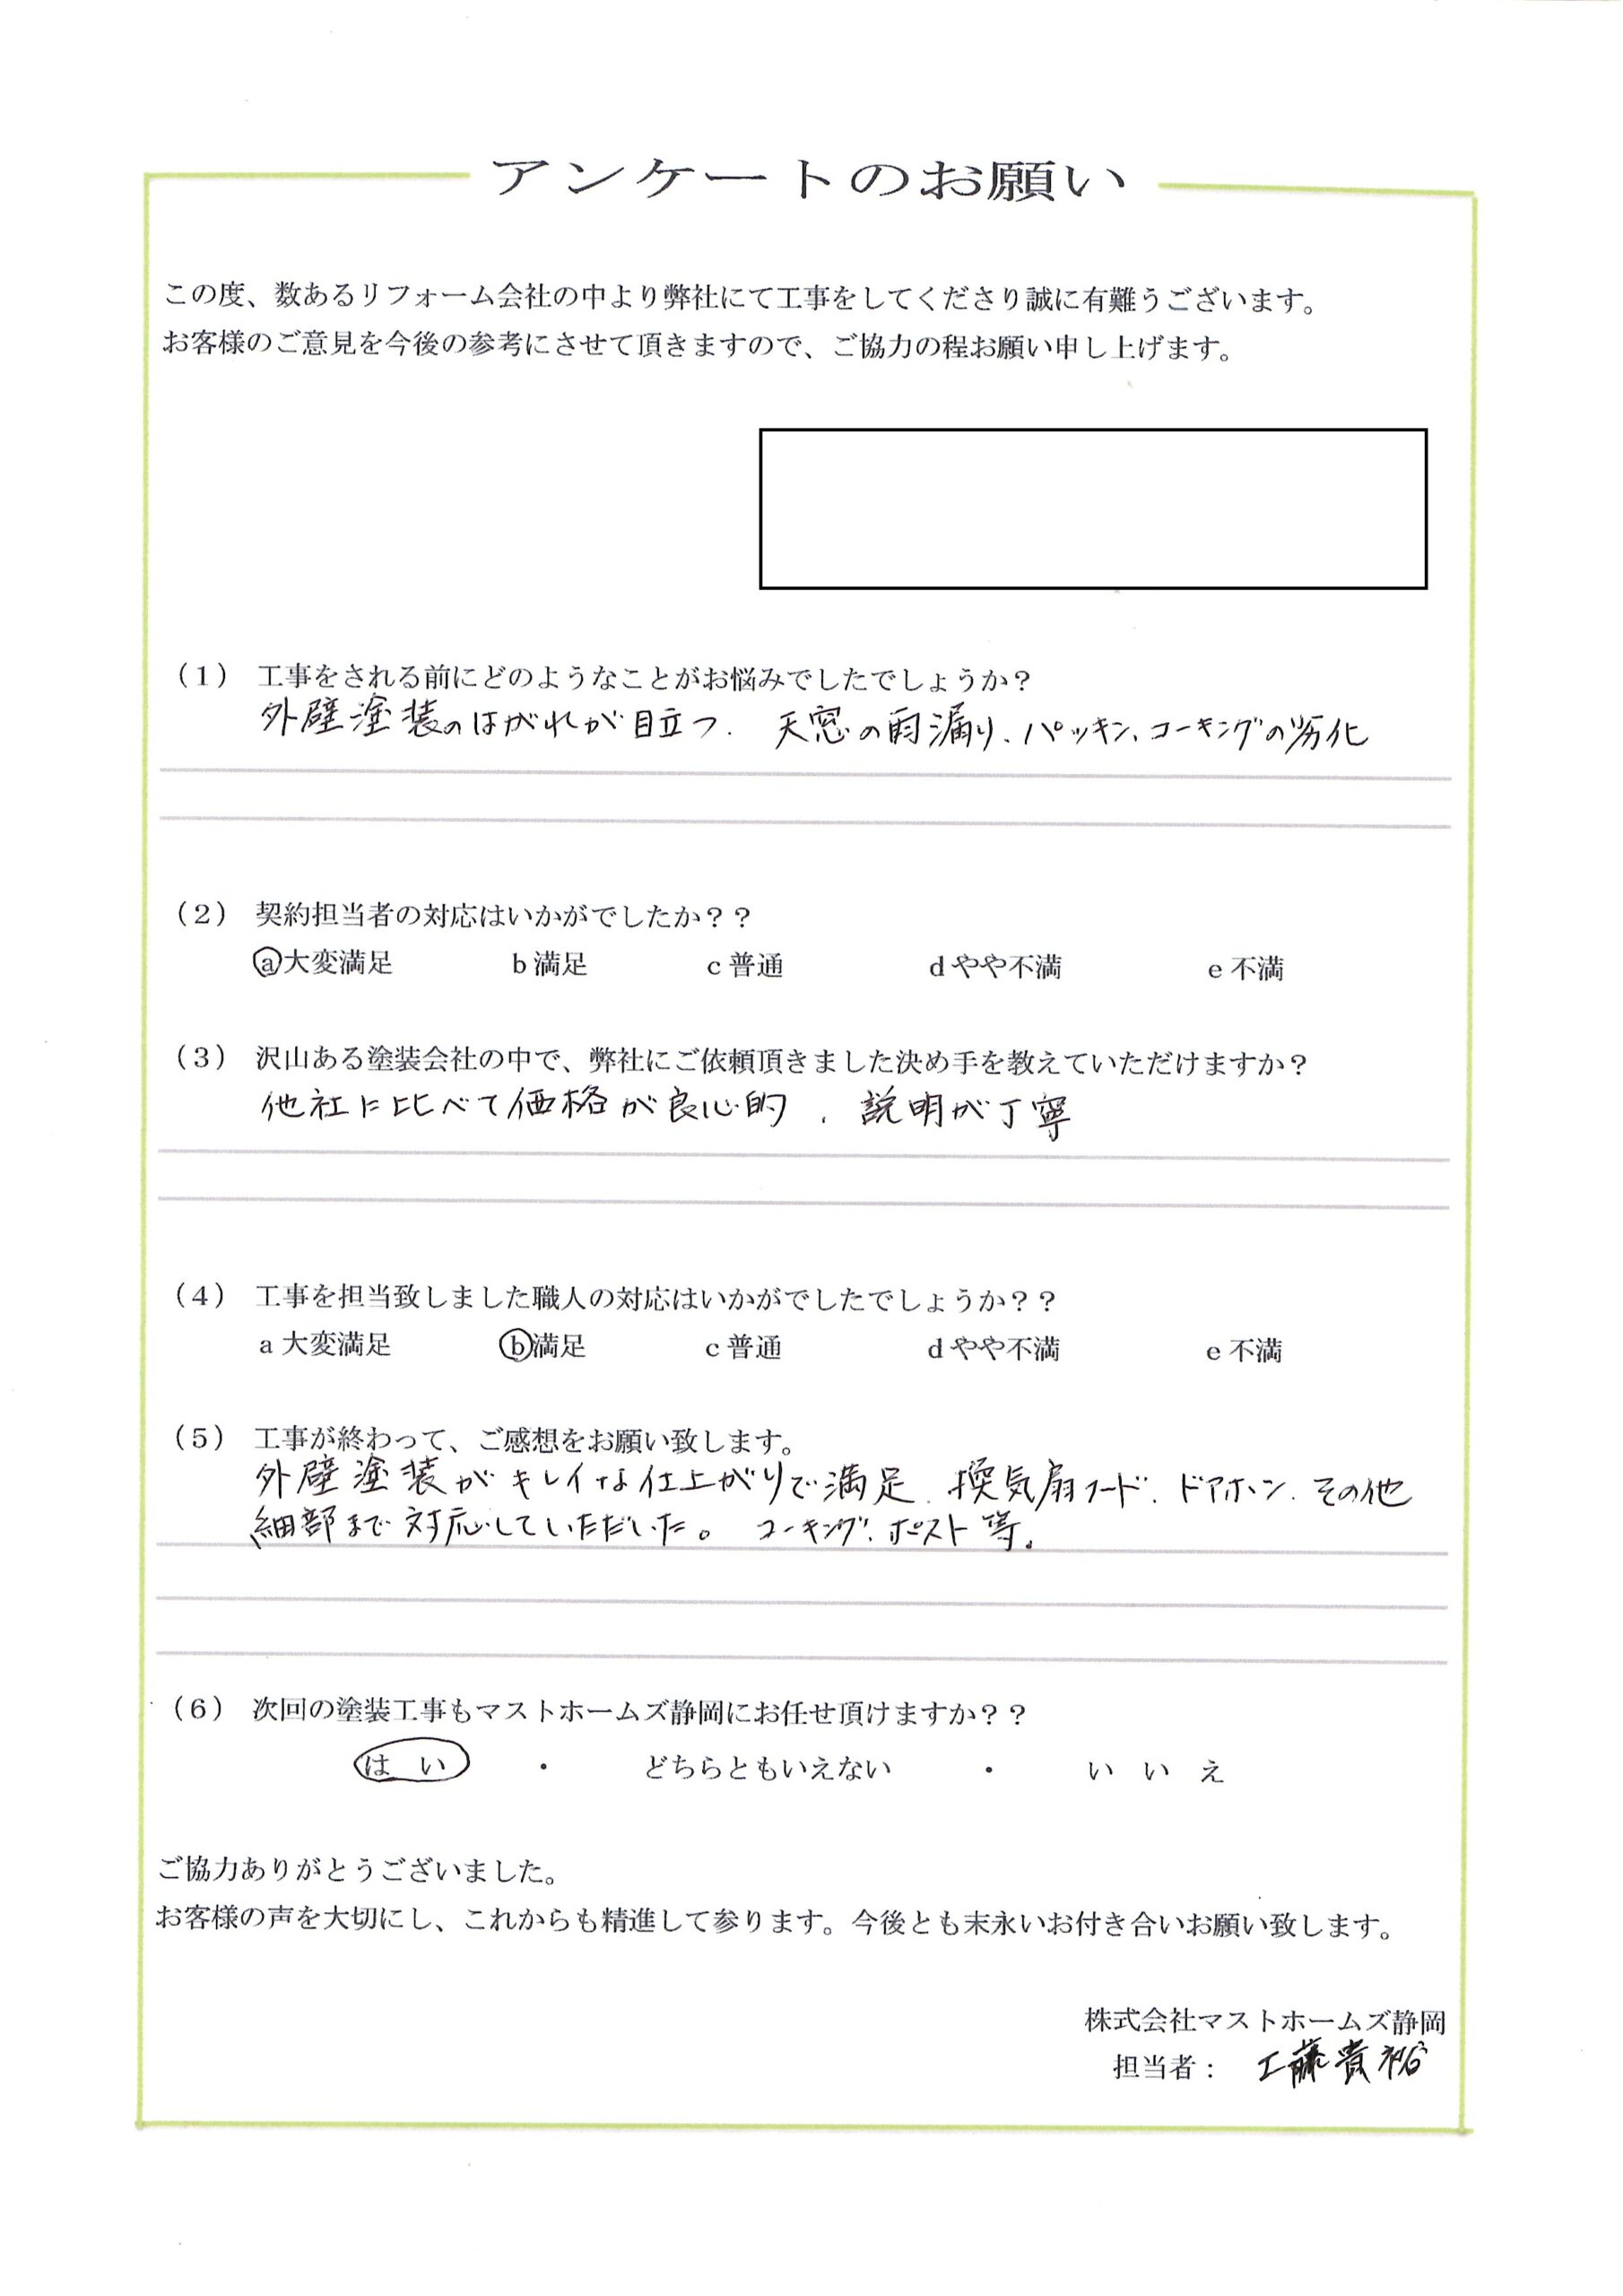 アンケートのお願い
この度、数あるリフォーム会社の中より弊社にて工事をしてくださり誠に有難うございます。
お客様のご意見を今後の参考にさせて頂きますので、ご協力の程お願い申し上げます。
(1) 工事をされる前にどのようなことがお悩みでしたでしょうか?
外壁塗装のはがれが目立つ. 天窓の雨漏り、パッキン、コーキングの劣化
(2) 契約担当者の対応はいかがでしたか??
a大変満足 b満足 c普通 dやや不満 e不満
(3) 沢山ある塗装会社の中で、弊社にご依頼頂きました決め手を教えていただけますか?
他社に比べて価格が良心的、説明が丁寧
(4) 工事を担当致しました職人の対応はいかがでしたでしょうか??
a大変満足 b満足 c普通 dやや不満 e不満
(5) 工事が終わって、ご感想をお願い致します。
外壁塗装がキレイな仕上がりで満足、換気扇フード、ドアホン、その他
細部まで対応していただいた。 コーキング、ポスト等。
(6) 次回の塗装工事もマストホームズ静岡にお任せ頂けますか??
はい ・ どちらともいえない ・ いいえ
ご協力ありがとうございました。
お客様の声を大切にし、これからも精進して参ります。今後とも末永いお付き合いお願い致します。
株式会社マストホームズ静岡
担当者: 工藤貴裕